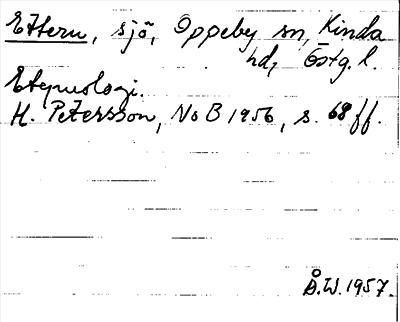 Ettern, sjö, Oppeby sn, Kinda
hd, Östg. l.
Etymologi.
H. Petersson, NoB 1956, s. 68 ff.
Å.W. 1957.